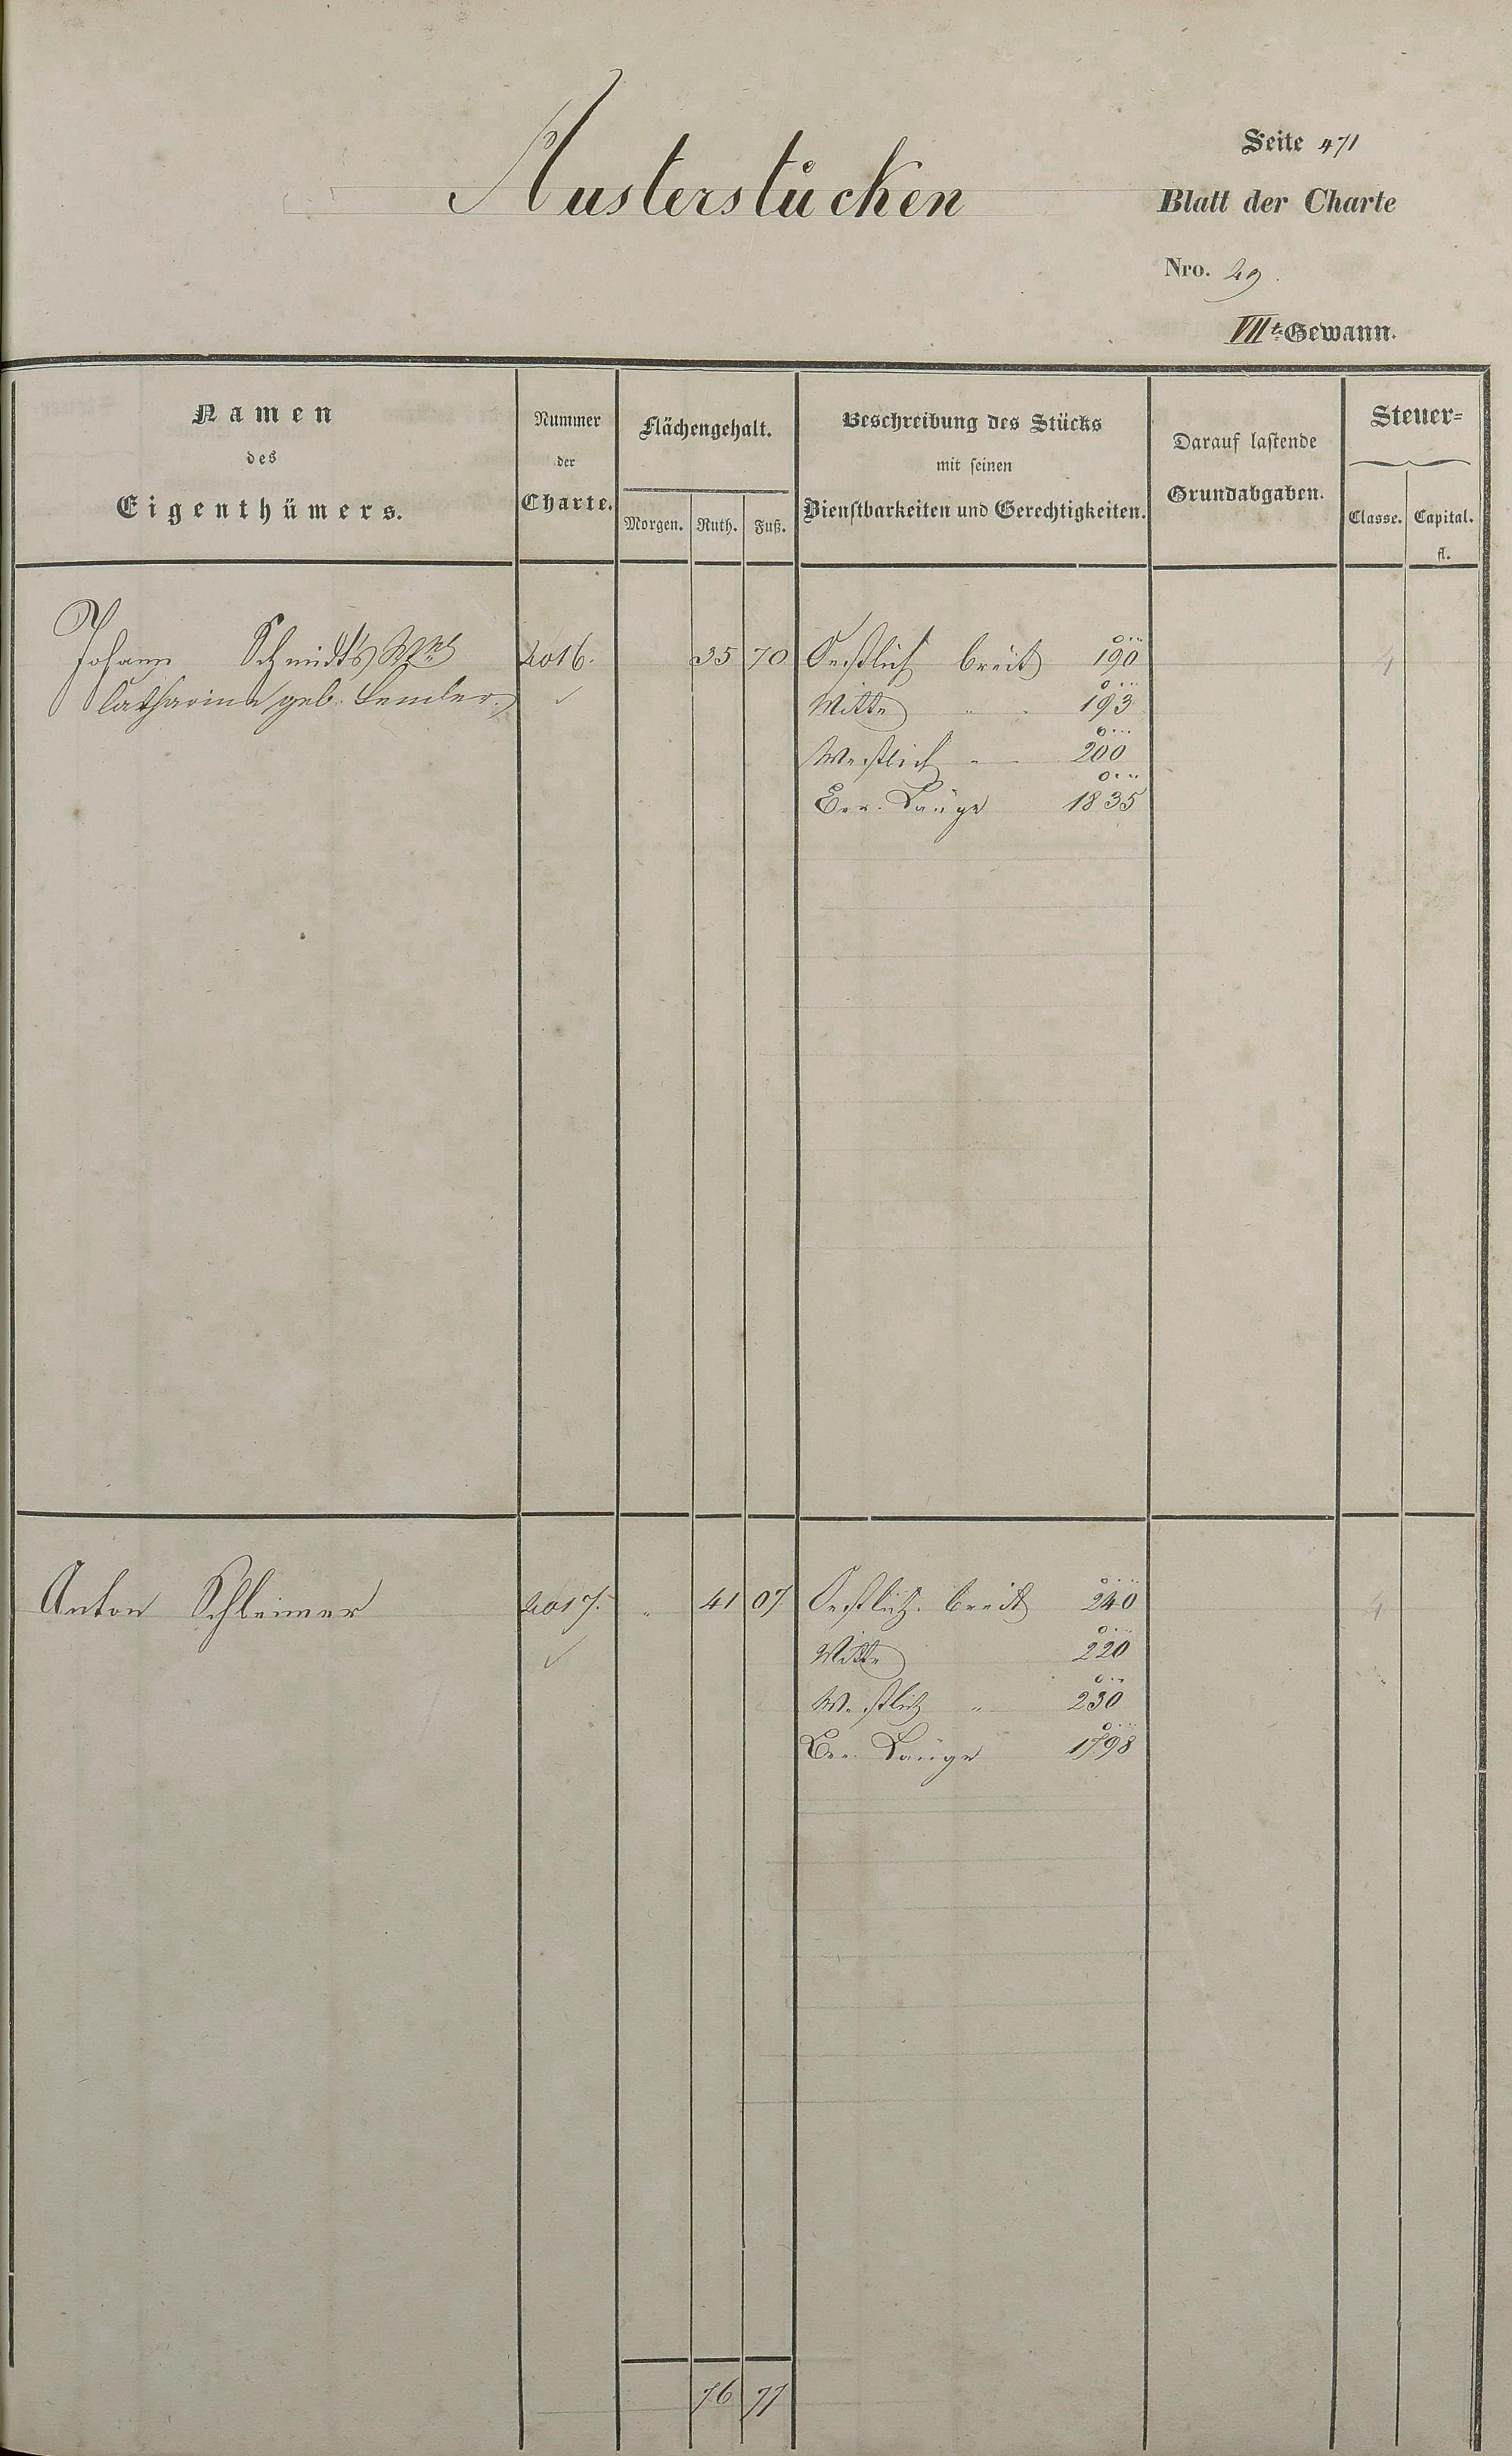 Austerstücken
Seite 471
Blatt der Charte
Nro. 29.
VIIt. Gewann.
Namen des Eigenthümers.
Nummer der Charte.
Flächengehalt.
Morgen. Ruth. Fuß.
Beschreibung des Stücks mit seinen Dienstbarkeiten und Gerechtigkeiten.
Darauf lastende Grundabgaben.
Steuer=
Classe. Capital. fl.
Johann Schmidt's 2016. 35 70 Oestlich breit 190 4
Catharina geb. Semler. ✓ Mitte " " 193
Westlich " 200
Länge 1835
Anton Schleimer 2017. " 41 07 Oestlich breit 240 4
✓ Mitte 220
Westlich " 230
Länge 1798
76 77